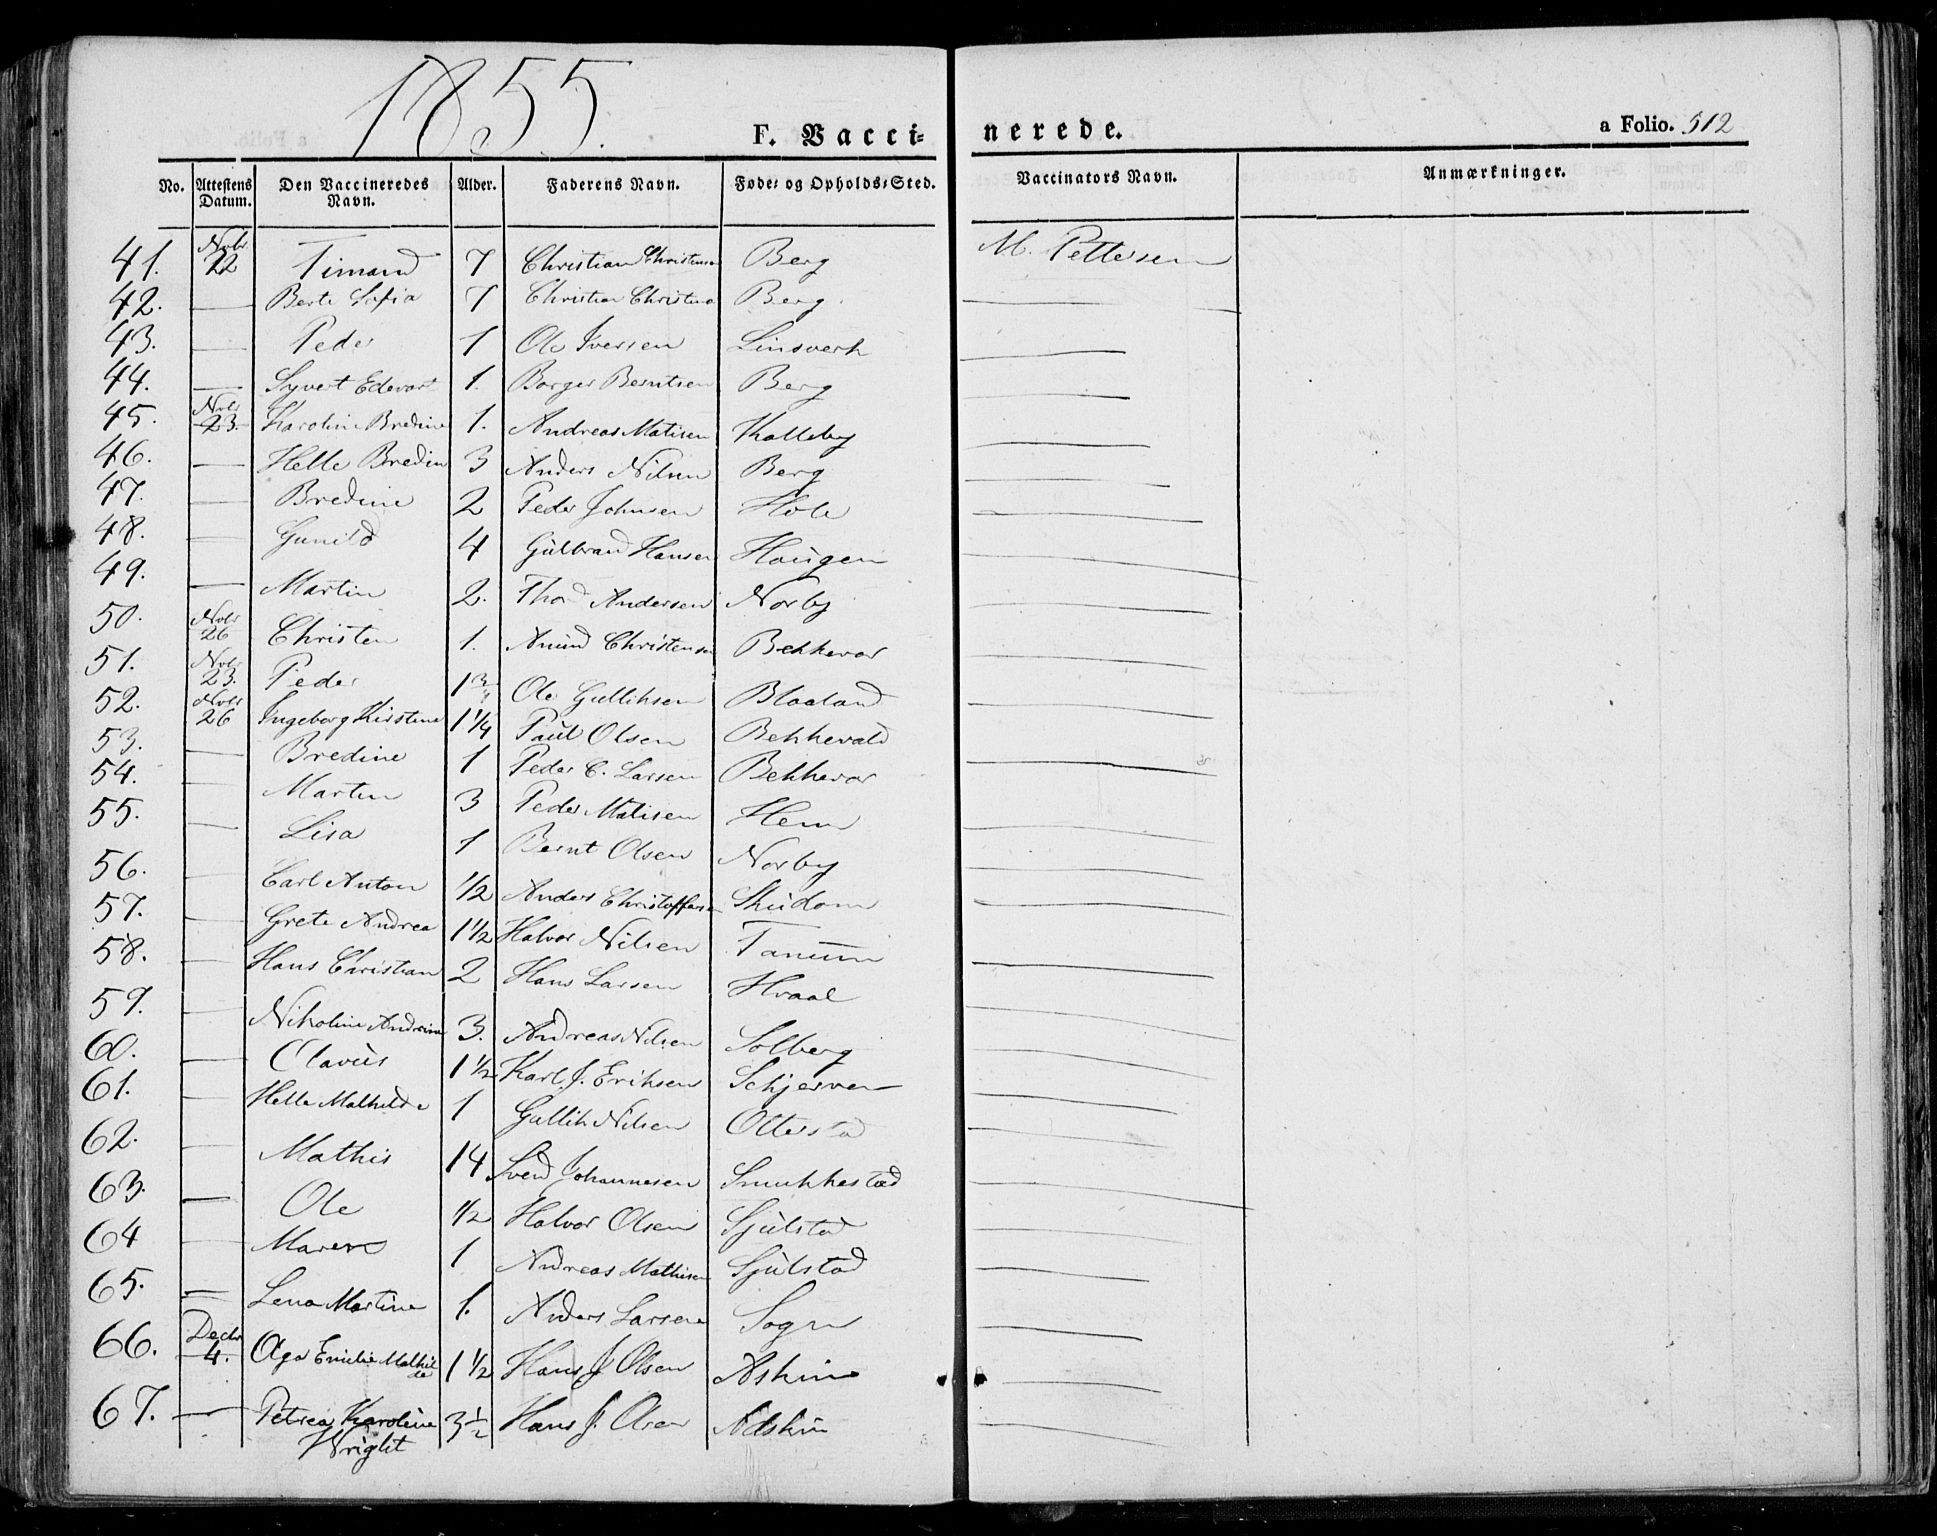 1855.
F. Vacci- nerede. a Folio. 512
No. Attestens Datum. Den Vaccineredes Navn. Alder. Faderens Navn. Føde- og Opholds-Sted. Vaccinators Navn. Anmærkninger.
41. Nvbr 22 Timand 7 Christian Christensen Berg M. Pettersen
42. — Berte Sofia 7 Christian Christens Berg —
43. — Peder 1 Ole Iversen Linsverk —
44. — Syvert Edevart 1. Borger Berntsen Berg —
45. Nvbr 23. Karoline Bredine 1. Andreas Matisen Kalleby —
46. — Helle Bredin 3 Anders Nilsen Berg —
47. — Bredine 2 Peder Johnsen Hole —
48. — Gunild 4 Gulbrand Hansen Haugen —
49. — Martin 2. Thor Andersen Norby —
50. Nvbr 26 Christen 1. Amund Christensen Bekkevar —
51. Nvbr 23. Peder 1 3/4 Ole Gulliksen Blaaland —
52. Nvbr 26 Ingeborg Kirstine 1 1/4 Paul Olsen Bekkevald —
53. — Bredine 1 Peder C. Larsen Bekkevar —
54. — Martin 3 Peder Matisen Hem —
55. — Lisa 1 Bernt Olsen Norby —
56. — Carl Anton 1/2 Anders Christoffersen Skudom —
57. — Grete Andrea 1 1/2 Halvor Nilsen Tanum —
58. — Hans Christian 2 Hans Larsen Hvaal —
59. — Nikoline Andrine 3. Andreas Nilsen Solberg —
60. — Olavus 1 1/2 Karl J. Eriksen Schjerven —
61. — Helle Mathilde 1 Gullik Nilsen Ottersta —
62. — Mathis 14 Svend Johannesen Smukkestad —
63. — Ole 1/2 Halvor Olsen Sjulstad —
64 — Maren 1 Andreas Mathisen Sjulstad —
65. — Lena Martine 1. Anders Larsen Sogn —
66. Decbr 4. Aga Emilie Mathilde 1 1/2 Hans J Olsen Askim —
67. — Petrea Karoline Wright 3 1/2 Hans J. Olsen Adskim —